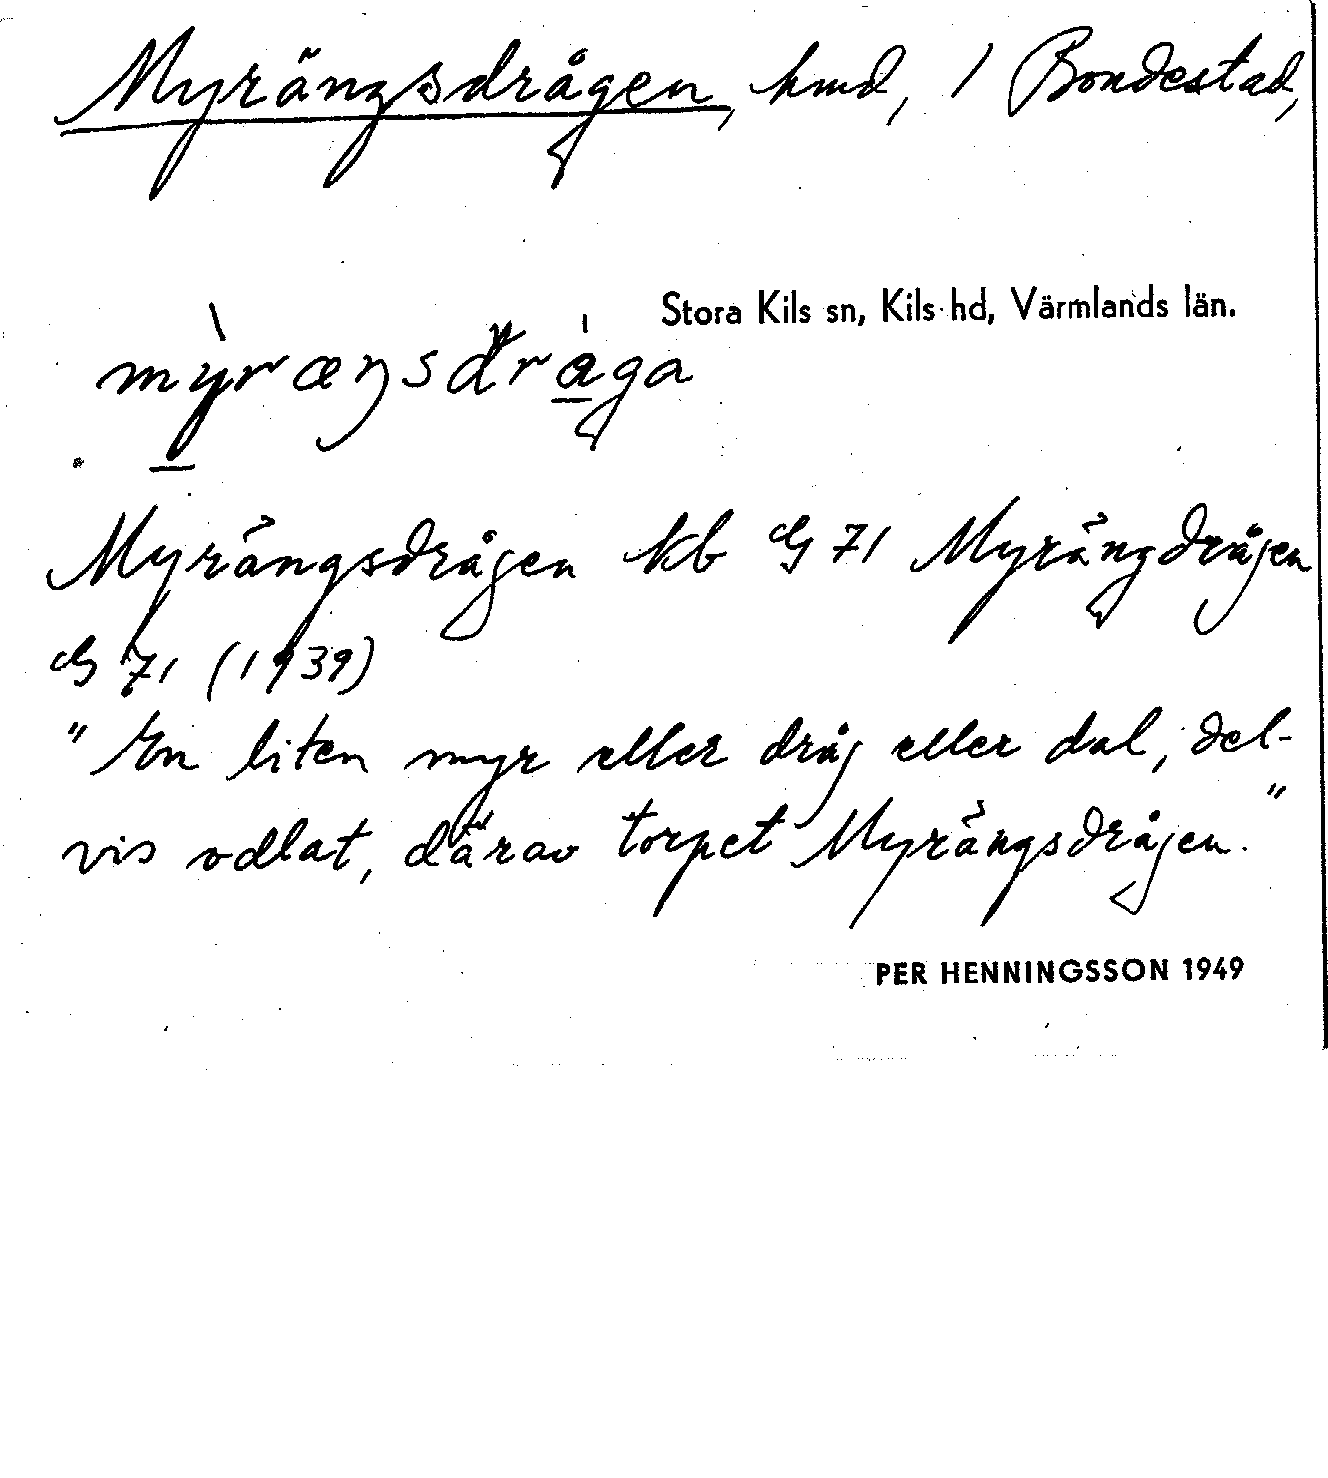 Myrängsdrågen, hmd, 1 Bondestad,
Stora Kils sn, Kils hd, Värmlands län.
myræŋsdraga
Myrängsdrågen kb G 71 Myrängdrågen
G 71 (1939)
"En liten myr eller dråg eller dal, del-
vis odlat, därav torpet Myrängsdrågen."
PER HENNINGSSON 1949